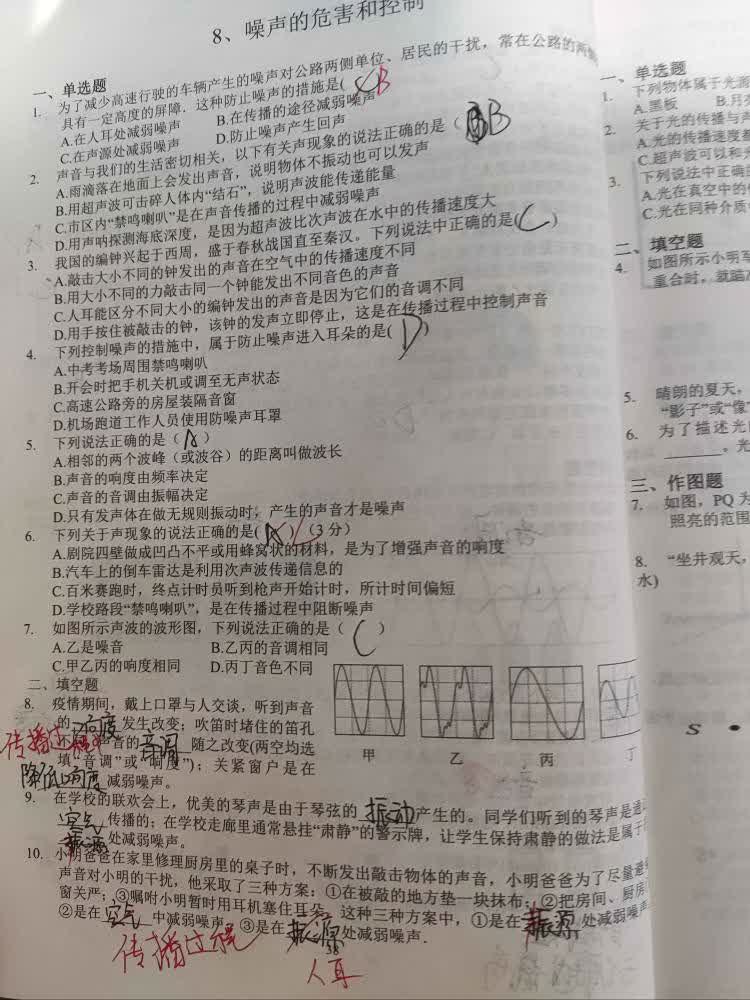 8、噪声的危害和控制
一、单选题
1. 为了减少高速行驶的车辆产生的噪声对公路两侧单位、居民的干扰，常在公路的两
具有一定高度的屏障．这种防止噪声的措施是( C B
A.在人耳处减弱噪声 B.在传播的途径减弱噪声
C.在声源处减弱噪声 D.防止噪声产生回声
2. 声音与我们的生活密切相关，以下有关声现象的说法正确的是（ B
A.雨滴落在地面上会发出声音，说明物体不振动也可以发声
B.用超声波可击碎人体内“结石”，说明声波能传递能量
C.市区内“禁鸣喇叭”是在声音传播的过程中减弱噪声
D.用声呐探测海底深度，是因为超声波比次声波在水中的传播速度大
3. 我国的编钟兴起于西周，盛于春秋战国直至秦汉。下列说法中正确的是( C )
A.敲击大小不同的钟发出的声音在空气中的传播速度不同
B.用大小不同的力敲击同一个钟能发出不同音色的声音
C.人耳能区分不同大小的编钟发出的声音是因为它们的音调不同
D.用手按住被敲击的钟，该钟的发声立即停止，这是在传播过程中控制声音
4. 下列控制噪声的措施中，属于防止噪声进入耳朵的是( D )
A.中考考场周围禁鸣喇叭
B.开会时把手机关机或调至无声状态
C.高速公路旁的房屋装隔音窗
D.机场跑道工作人员使用防噪声耳罩
5. 下列说法正确的是（ A ）
A.相邻的两个波峰（或波谷）的距离叫做波长
B.声音的响度由频率决定
C.声音的音调由振幅决定
D.只有发声体在做无规则振动时，产生的声音才是噪声
6. 下列关于声现象的说法正确的是( )（3 分）
A.剧院四壁做成凹凸不平或用蜂窝状的材料，是为了增强声音的响度
B.汽车上的倒车雷达是利用次声波传递信息的
C.百米赛跑时，终点计时员听到枪声开始计时，所计时间偏短
D.学校路段“禁鸣喇叭”，是在传播过程中阻断噪声
7. 如图所示声波的波形图，下列说法正确的是（ C ）
A.乙是噪音 B.乙丙的音调相同
C.甲乙丙的响度相同 D.丙丁音色不同
甲 乙 丙 丁
二、填空题
8. 疫情期间，戴上口罩与人交谈，听到声音
的 响度 发生改变；吹笛时堵住的笛孔
声音的 音调 随之改变(两空均选
填“音调”或“响度”)；关紧窗户是在
传播过程中
降低响度 减弱噪声。
9. 在学校的联欢会上，优美的琴声是由于琴弦的 振动 产生的。同学们听到的琴声是通
空气 传播的；在学校走廊里通常悬挂“肃静”的警示牌，让学生保持肃静的做法是属于
振源 处减弱噪声。
10. 小明爸爸在家里修理厨房里的桌子时，不断发出敲击物体的声音，小明爸爸为了尽量避
声音对小明的干扰，他采取了三种方案：①在被敲的地方垫一块抹布；②把房间、厨房
窗关严；③嘱咐小明暂时用耳机塞住耳朵．这种三种方案中，①是在 振源 处减弱噪声
②是在 空气 中减弱噪声，③是在 振源 处减弱噪声．
传播过程
人耳
38
一、单选题
1. 下列物体属于光源
A.黑板 B.月
2. 关于光的传播与声
A.光的传播速度
C.超声波可以和
3. 下列说法中正确
A.光在真空中的
C.光在同种介质
二、填空题
4. 如图所示小明
重合时，就瞄
5. 晴朗的夏天，
“影子”或“像”
6. 为了描述光
。光
三、作图题
7. 如图，PQ 为
照亮的范围
8. “坐井观天，
水)
S